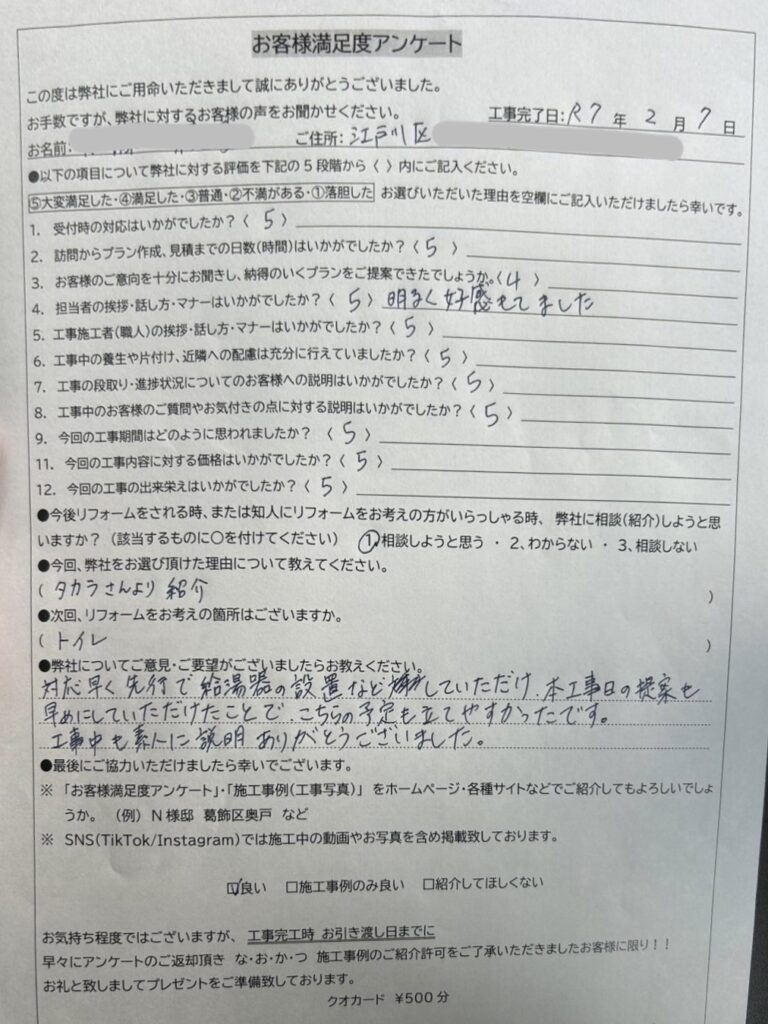 お客様満足度アンケート
この度は弊社にご用命いただきまして誠にありがとうございました。
お手数ですが、弊社に対するお客様の声をお聞かせください。 工事完了日:R7年 2月 7日
お名前: ご住所:江戸川区
●以下の項目について弊社に対する評価を下記の5段階から〈 〉内にご記入ください。
⑤大変満足した・④満足した・③普通・②不満がある・①落胆した お選びいただいた理由を空欄にご記入いただけましたら幸いです。
1. 受付時の対応はいかがでしたか?〈 5 〉
2. 訪問からプラン作成、見積までの日数(時間)はいかがでしたか?〈 5 〉
3. お客様のご意向を十分にお聞きし、納得のいくプランをご提案できたでしょうか。〈 4 〉
4. 担当者の挨拶・話し方・マナーはいかがでしたか?〈 5 〉 明るく好感もてました
5. 工事施工者(職人)の挨拶・話し方・マナーはいかがでしたか?〈 5 〉
6. 工事中の養生や片付け、近隣への配慮は充分に行えていましたか?〈 5 〉
7. 工事の段取り・進捗状況についてのお客様への説明はいかがでしたか?〈 5 〉
8. 工事中のお客様のご質問やお気付きの点に対する説明はいかがでしたか?〈 5 〉
9. 今回の工事期間はどのように思われましたか? 〈 5 〉
11. 今回の工事内容に対する価格はいかがでしたか?〈 5 〉
12. 今回の工事の出来栄えはいかがでしたか?〈 5 〉
●今後リフォームをされる時、または知人にリフォームをお考えの方がいらっしゃる時、弊社に相談(紹介)しようと思
いますか?(該当するものに○を付けてください) 1、相談しようと思う ・ 2、わからない ・ 3、相談しない
●今回、弊社をお選び頂けた理由について教えてください。
( タカラさんより紹介 )
●次回、リフォームをお考えの箇所はございますか。
( トイレ )
●弊社についてご意見・ご要望がございましたらお教えください。
対応早く先行で給湯器の設置などしていただけ、本工事日の提案も
早めにしていただけたことで、こちらの予定も立てやすかったです。
工事中も素人に説明ありがとうございました。
●最後にご協力いただけましたら幸いでございます。
※ 「お客様満足度アンケート」・「施工事例(工事写真)」 をホームページ・各種サイトなどでご紹介してもよろしいでしょ
うか。 (例) N様邸 葛飾区奥戸 など
※ SNS(TikTok/Instagram)では施工中の動画やお写真を含め掲載致しております。
☑良い □施工事例のみ良い □紹介してほしくない
お気持ち程度ではございますが、 工事完工時 お引き渡し日までに
早々にアンケートのご返却頂き な・お・か・つ 施工事例のご紹介許可をご了承いただきましたお客様に限り!!
お礼と致しましてプレゼントをご準備致しております。
クオカード ¥500分